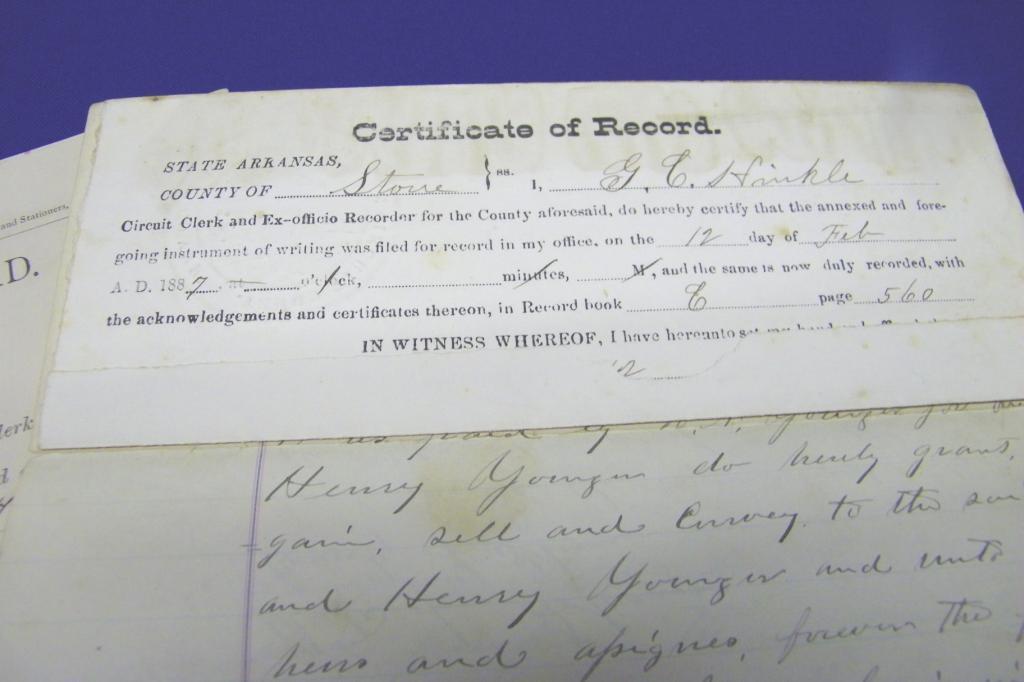 Certificate of Record.
STATE ARKANSAS,
COUNTY OF Stone } ss. I, G. C. Hinkle
Circuit Clerk and Ex-officio Recorder for the County aforesaid, do hereby certify that the annexed and fore-
going instrument of writing was filed for record in my office, on the 12 day of Feb
A. D. 1887, at o'clock, minutes, M, and the same is now duly recorded, with
the acknowledgements and certificates thereon, in Record book C page 560
IN WITNESS WHEREOF, I have hereunto set my hand and
and Stationers,
D.
lerk
Henry Younger do herely grant,
gain, sell and Convey, to the
and Henry Younger and unto
heirs and assignes, forever the